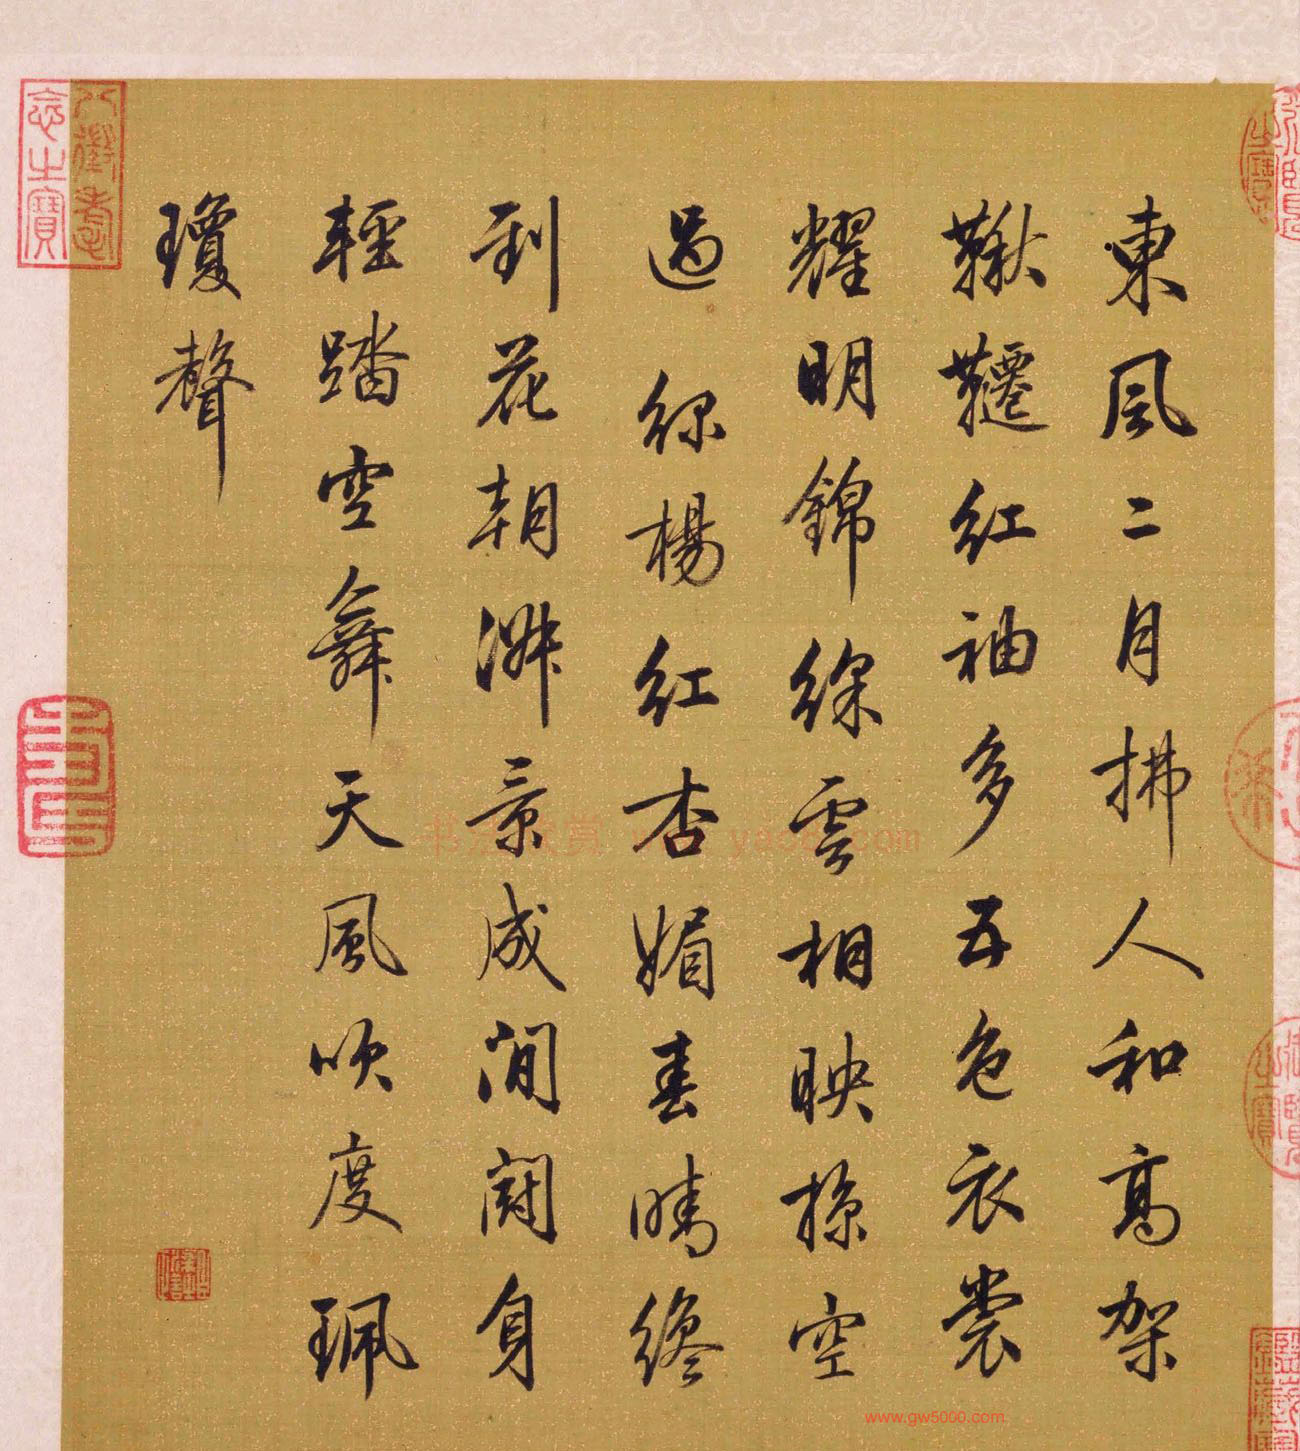 東風二月拂人和高架
鞦韆紅袖多五色衣裳
耀明錦綵雲相映掠空
過綠楊紅杏媚春晴纔
到花朝淑景成閒鬪身
輕踏空舞天風吹度珮
瓊聲
八徵耄
念之寶
www.gw5000.com